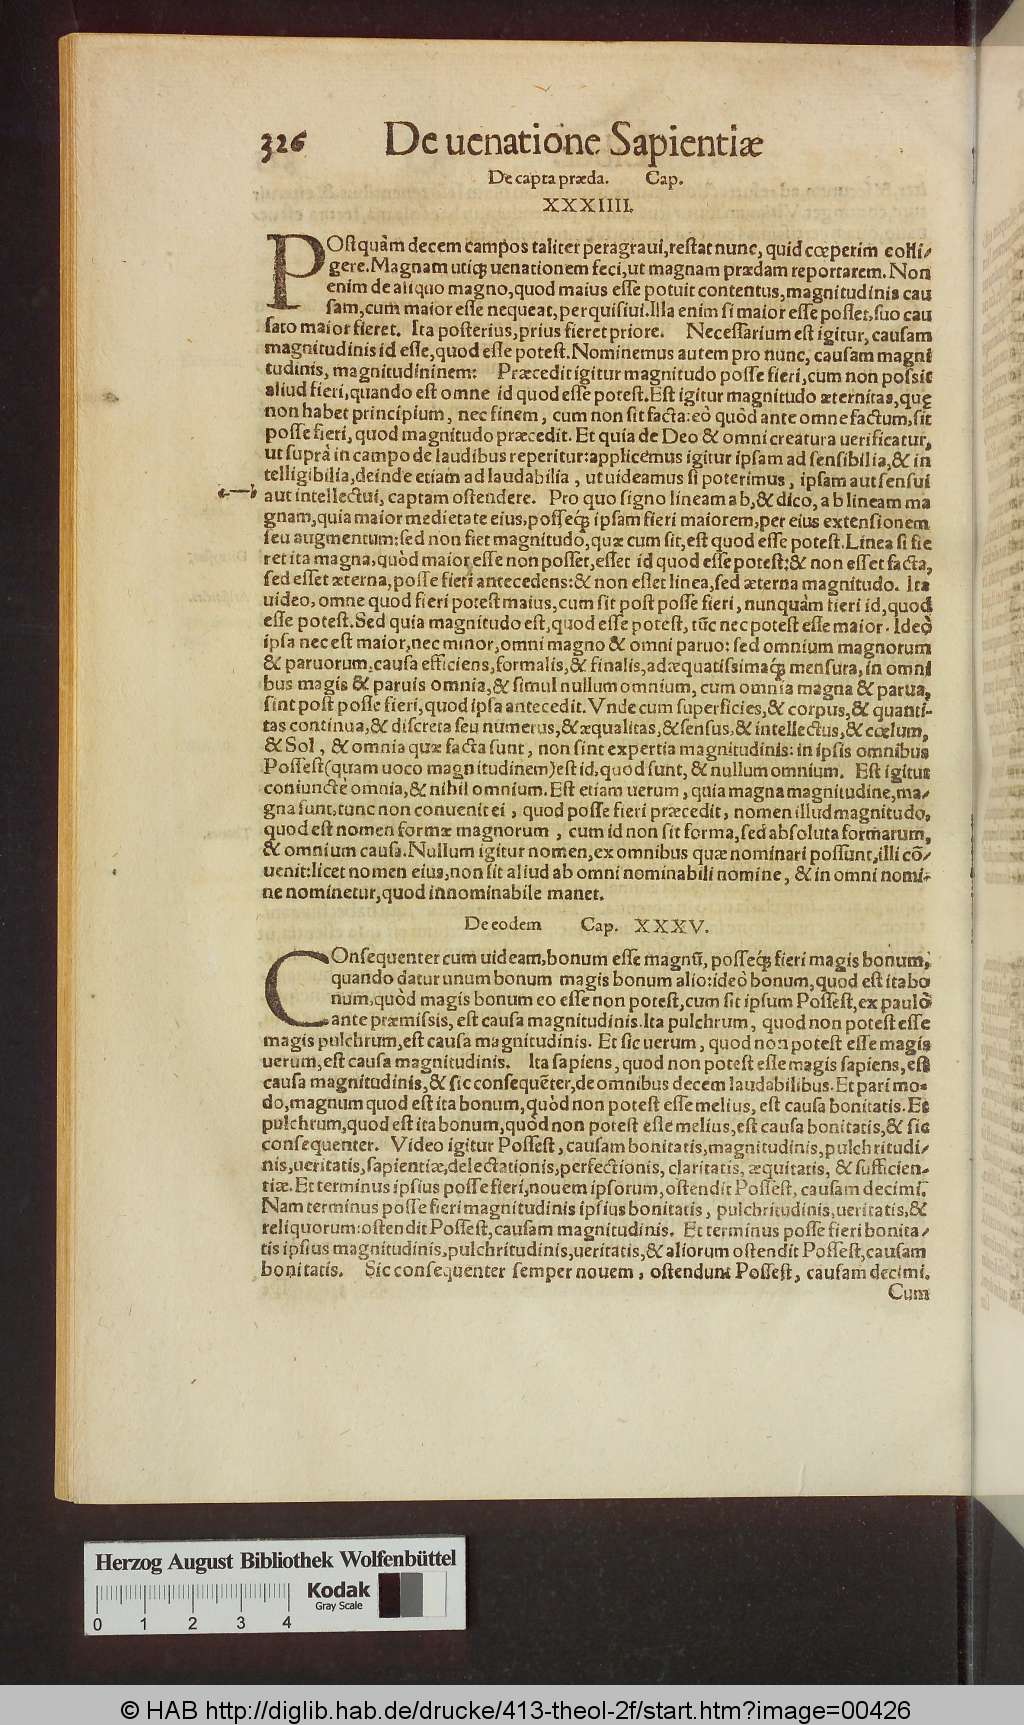 326 De uenatione Sapientiæ
De capta præda. Cap.
XXXIIII.
POſtquàm decem campos taliter peragraui, reſtat nunc, quid cœperim colli-
gere. Magnam utiqꝫ uenationem feci, ut magnam prædam reportarem. Non
enim de aliquo magno, quod maius eſſe potuit contentus, magnitudinis cau
ſam, cum maior eſſe nequeat, perquiſiui. Illa enim ſi maior eſſe poſſet, ſuo cau
ſato maior fieret. Ita poſterius, prius fieret priore. Neceſſarium eſt igitur, cauſam
magnitudinis id eſſe, quod eſſe poteſt. Nominemus autem pro nunc, cauſam magni
tudinis, magnitudininem: Præcedit igitur magnitudo poſſe fieri, cum non poſsit
aliud fieri, quando eſt omne id quod eſſe poteſt. Eſt igitur magnitudo æternitas, quę
non habet principium, nec finem, cum non ſit facta: eò quòd ante omne factum, ſit
poſſe fieri, quod magnitudo præcedit. Et quia de Deo & omni creatura uerificatur,
ut ſuprà in campo de laudibus reperitur: applicemus igitur ipſam ad ſenſibilia, & in
telligibilia, deinde etiam ad laudabilia, ut uideamus ſi poterimus, ipſam aut ſenſui
a—b aut intellectui, captam oſtendere. Pro quo ſigno lineam a b, & dico, a b lineam ma
gnam, quia maior medietate eius, poſſeqꝫ ipſam fieri maiorem, per eius extenſionem
ſeu augmentum: ſed non fiet magnitudo, quæ cum ſit, eſt quod eſſe poteſt. Linea ſi fie
ret ita magna, quòd maior eſſe non poſſet, eſſet id quod eſſe poteſt; & non eſſet facta,
ſed eſſet æterna, poſſe fieri antecedens: & non eſſet linea, ſed æterna magnitudo. Ita
uideo, omne quod fieri poteſt maius, cum ſit poſt poſſe fieri, nunquàm fieri id, quod
eſſe poteſt. Sed quia magnitudo eſt, quod eſſe poteſt, tūc nec poteſt eſſe maior. Ideò
ipſa nec eſt maior, nec minor, omni magno & omni paruo: ſed omnium magnorum
& paruorum, cauſa efficiens, formalis, & finalis, adæquatiſsimaqꝫ menſura, in omni
bus magis & paruis omnia, & ſimul nullum omnium, cum omnia magna & parua,
ſint poſt poſſe fieri, quod ipſa antecedit. Vnde cum ſuperficies, & corpus, & quanti-
tas continua, & diſcreta ſeu numerus, & æqualitas, & ſenſus, & intellectus, & cœlum,
& Sol, & omnia quæ facta ſunt, non ſint expertia magnitudinis: in ipſis omnibus
Poſſeſt (quam uoco magnitudinem) eſt id, quod ſunt, & nullum omnium. Eſt igitur
coniunctè omnia, & nihil omnium. Eſt etiam uerum, quia magna magnitudine, ma-
gna ſunt, tunc non conuenit ei, quod poſſe fieri præcedit, nomen illud magnitudo,
quod eſt nomen formæ magnorum, cum id non ſit forma, ſed abſoluta formarum,
& omnium cauſa. Nullum igitur nomen, ex omnibus quæ nominari poſſunt, illi cō-
uenit: licet nomen eius, non ſit aliud ab omni nominabili nomine, & in omni nomi-
ne nominetur, quod innominabile manet.
De eodem Cap. XXXV.
COnſequenter cum uideam, bonum eſſe magnū, poſſeqꝫ fieri magis bonum,
quando datur unum bonum magis bonum alio: ideò bonum, quod eſt ita bo
num, quòd magis bonum eo eſſe non poteſt, cum ſit ipſum Poſſeſt, ex paulò
ante præmiſsis, eſt cauſa magnitudinis. Ita pulchrum, quod non poteſt eſſe
magis pulchrum, eſt cauſa magnitudinis. Et ſic uerum, quod non poteſt eſſe magis
uerum, eſt cauſa magnitudinis. Ita ſapiens, quod non poteſt eſſe magis ſapiens, eſt
cauſa magnitudinis, & ſic conſequēter, de omnibus decem laudabilibus. Et pari mo-
do, magnum quod eſt ita bonum, quòd non poteſt eſſe melius, eſt cauſa bonitatis. Et
pulchrum, quod eſt ita bonum, quòd non poteſt eſſe melius, eſt cauſa bonitatis, & ſic
conſequenter. Video igitur Poſſeſt, cauſam bonitatis, magnitudinis, pulchritudi-
nis, ueritatis, ſapientiæ, delectationis, perfectionis, claritatis, æquitatis, & ſufficien-
tiæ. Et terminus ipſius poſſe fieri, nouem ipſorum, oſtendit Poſſeſt, cauſam decimi.
Nam terminus poſſe fieri magnitudinis ipſius bonitatis, pulchritudinis, ueritatis, &
reliquorum: oſtendit Poſſeſt, cauſam magnitudinis. Et terminus poſſe fieri bonita-
tis ipſius magnitudinis, pulchritudinis, ueritatis, & aliorum oſtendit Poſſeſt, cauſam
bonitatis. Sic conſequenter ſemper nouem, oſtendunt Poſſeſt, cauſam decimi.
Cum
Herzog August Bibliothek Wolfenbüttel
Kodak
Gray Scale
0 1 2 3 4
© HAB http://diglib.hab.de/drucke/413-theol-2f/start.htm?image=00426